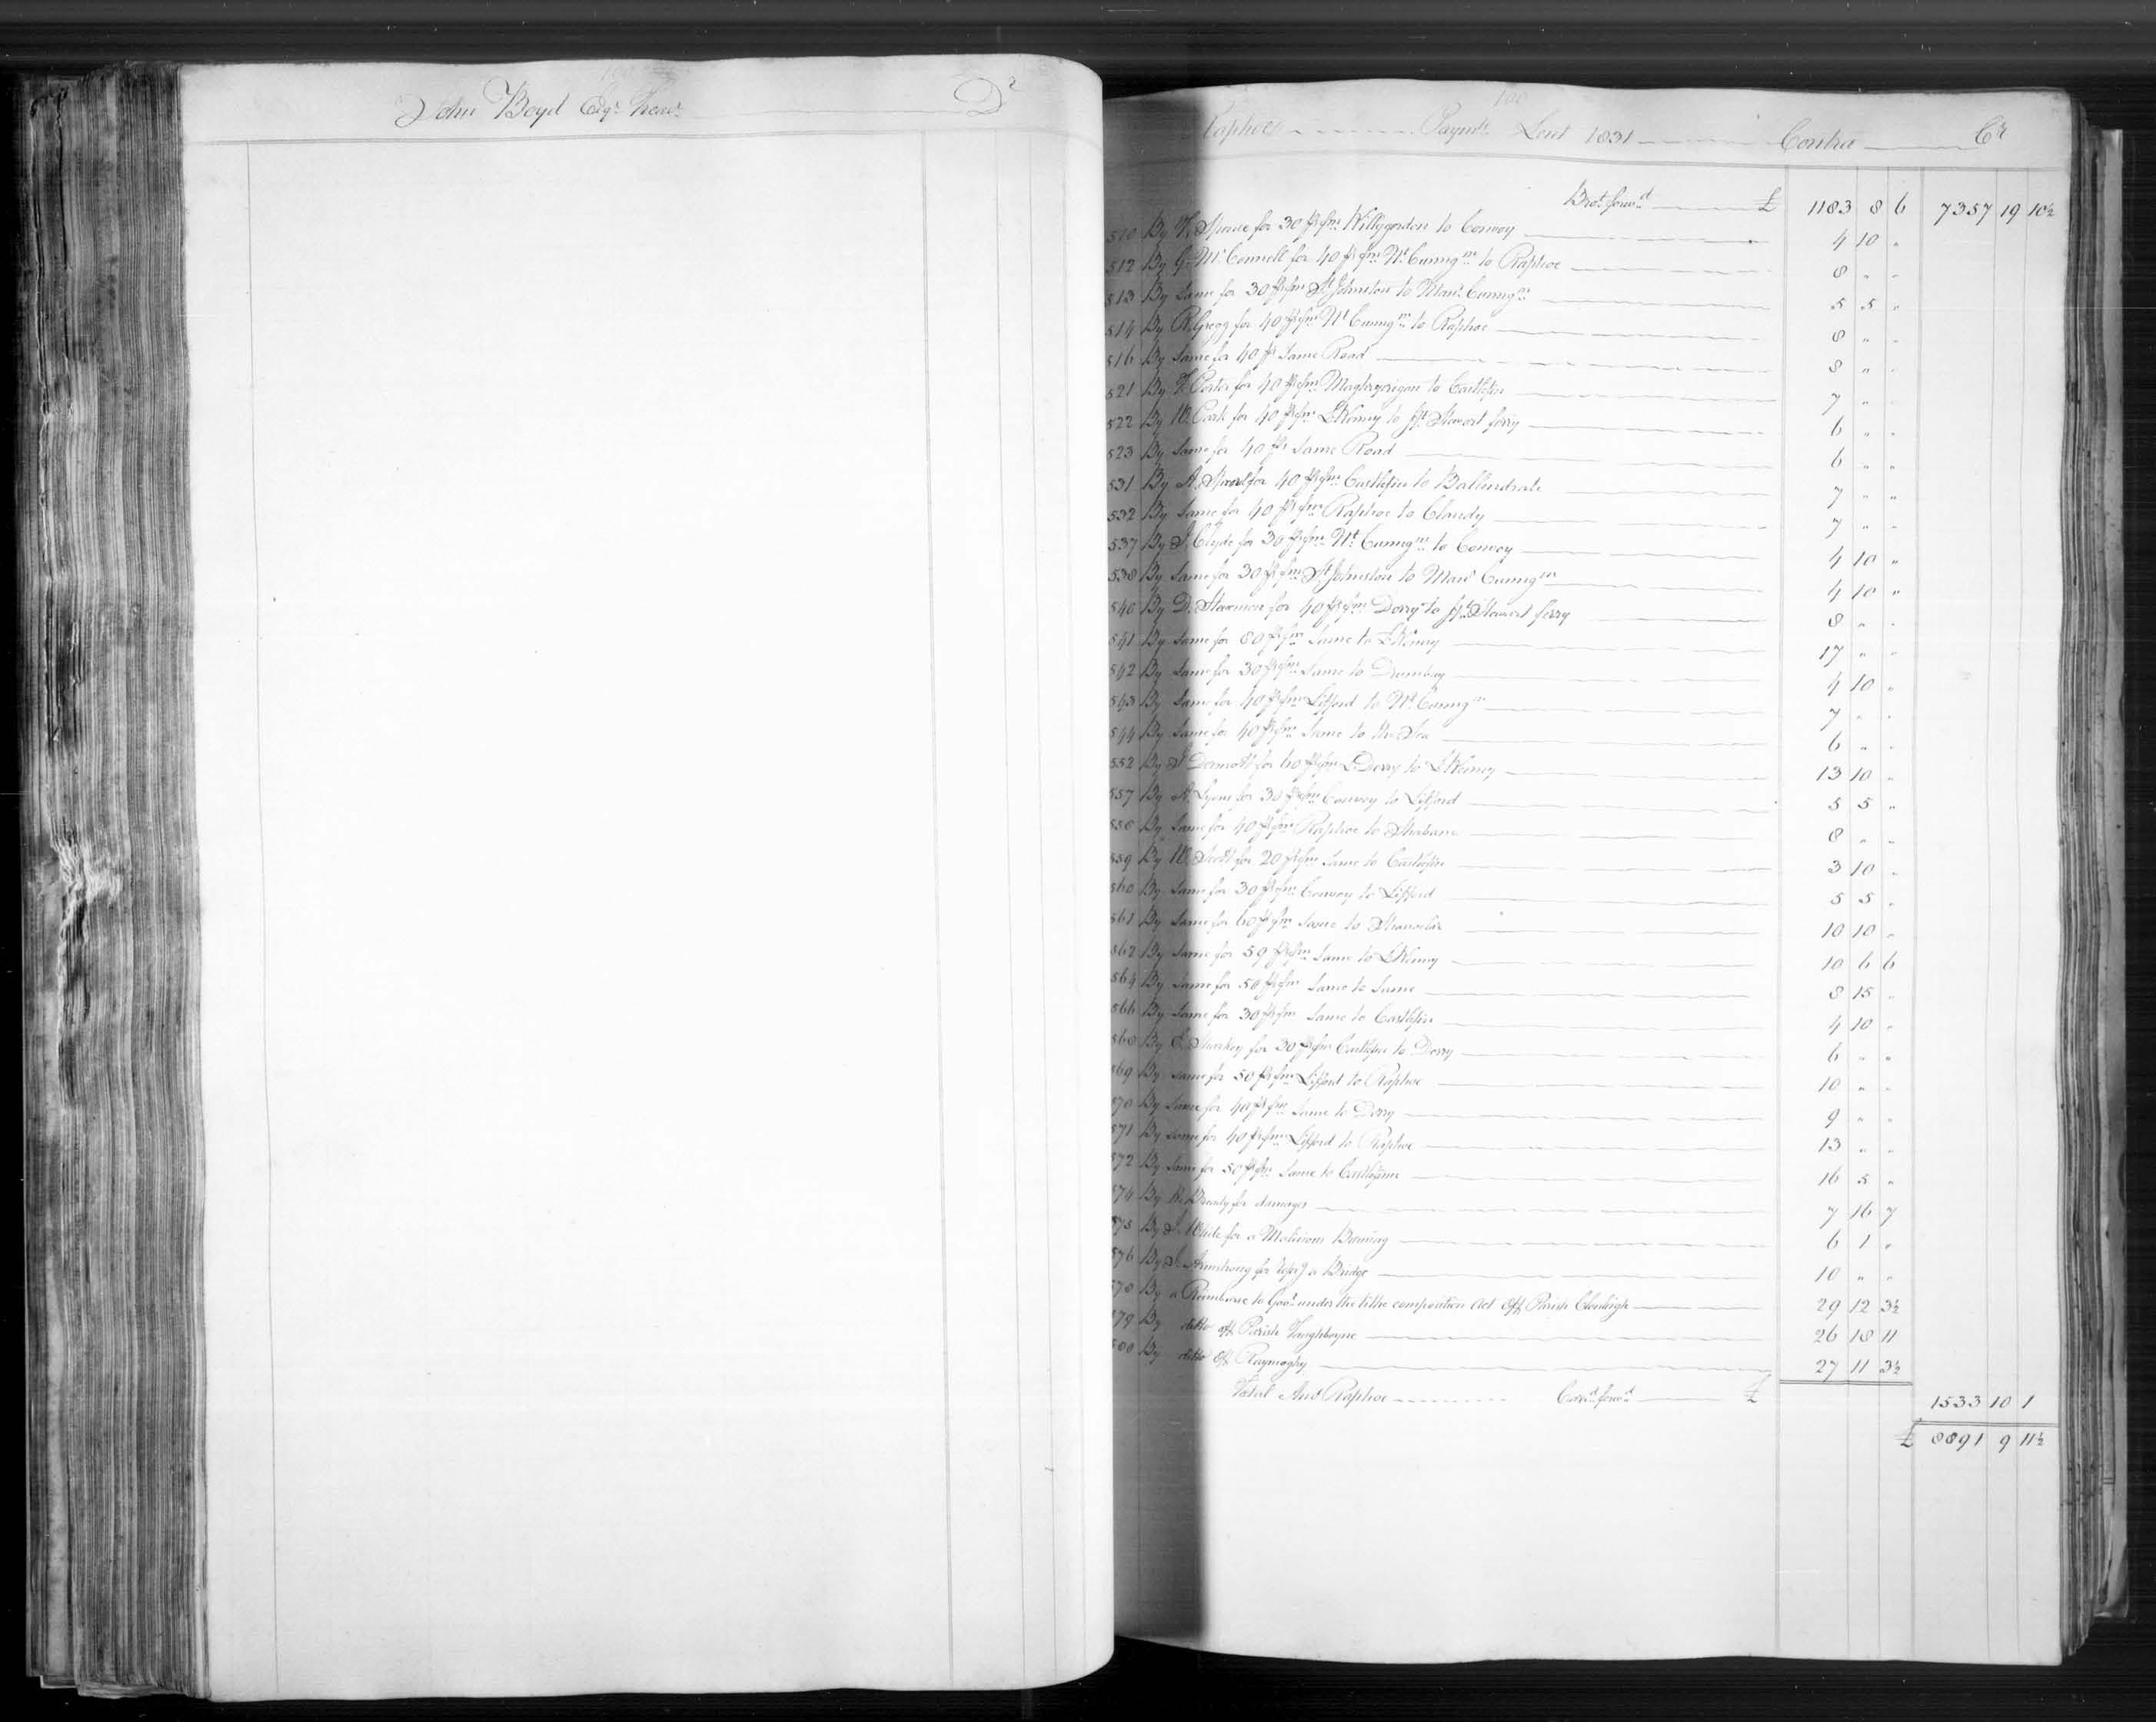 John Boyd Esqr. Treasr. Dr
100
Raphoe Paymts. Lent 1831 Contra Cr
Brot. forwd. £ 1183 8 6 7357 19 10½
510 By Spence for 30 ps fm. Killygordon to Convoy 4 10 "
512 By G. McConnell for 40 ps fm. Nt. Cunngm. to Raphoe 8 " "
513 By Same for 30 ps fm. St. Johnston to Manr. Cunngm. 5 5 "
514 By R. Gregg for 40 ps fm. Nt. Cunngm. to Raphoe 8 " "
516 By Same for 40 ps Same Road 8 " "
521 By Porter for 40 ps fm. to Castlefin 7 " "
522 By W. Park for 40 ps fm. LKenny to ft. Stewart ferry 6 " "
523 By Same for 40 ps Same Road 6 " "
531 By A. for 40 ps fm. Castlefin to Ballindrate 7 " "
532 By Same for 40 ps fm. Raphoe to Claudy 7 " "
537 By Clyde for 30 ps fm. Nt. Cunngm. to Convoy 4 10 "
538 By Same for 30 ps fm. St. Johnston to Manr. Cunngm. 4 10 "
540 By D. for 40 ps fm. Derry to ft. Stewart ferry 8 " "
541 By Same for 80 ps fm. Same to LKenny 17 " "
542 By Same for 30 ps fm. Same to 4 10 "
543 By Same for 40 ps fm. Lifford to Nt. Cunngm. 7 " "
544 By Same for 40 ps fm. Same to the Sea 6 " "
552 By Dermott for 60 ps fm. LDerry to LKenny 13 10 "
557 By Lyons for 30 ps fm. Convoy to Lifford 5 5 "
558 By Same for 40 ps fm. Raphoe to Strabane 8 " "
559 By W. Scott for 20 ps fm. Same to Castlefin 3 10 "
560 By Same for 30 ps fm. Convoy to Lifford 5 5 "
561 By Same for 60 ps fm. Same to Stranorlar 10 10 "
562 By Same for 59 ps fm. Same to LKenny 10 6 6
564 By Same for 50 ps fm. Same to Same 8 15 "
566 By Same for 30 ps fm. Same to Castlefin 4 10 "
568 By Sharkey for 30 ps fm. Castlefin to Derry 6 " "
569 By Same for 50 ps fm. Lifford to Raphoe 10 " "
570 By Same for 40 ps fm. Same to Derry 9 " "
571 By Same for 40 ps fm. Lifford to Raphoe 13 " "
572 By Same for 50 ps fm. Same to 16 5 "
574 By for damages 7 16 7
575 By White for a Malicious Burning 6 1 "
576 By Armstrong for a Bridge 10 " "
578 By a Reimburse to Govt. under the tithe composition act off Parish Clonleigh 29 12 3½
579 By ditto off Parish Taughboyne 26 18 11
580 By ditto off Raymoghy 27 11 3½
Total And. Raphoe Carrd. forwd. £ 1533 10 1
£ 8891 9 11½